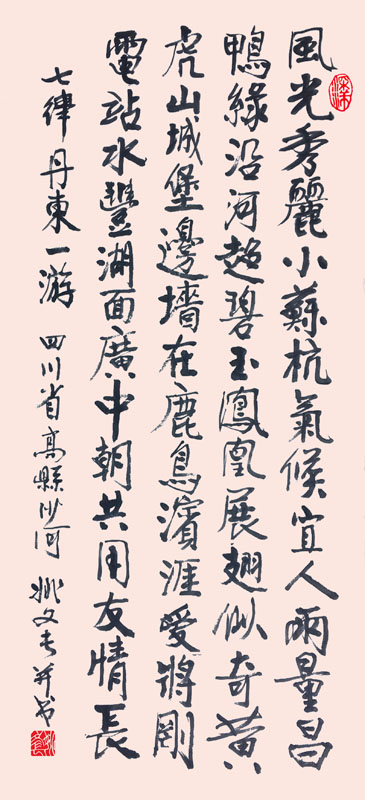 風光秀麗小蘇杭氣候宜人雨量昌
鴨緣沿河超碧玉鳳凰展翅似奇黃
虎山城堡邊墻在鹿鳥濱涯愛將剛
電站水豐湖面廣中朝共用友情長
七律丹東一游 四川省高縣沙河 姚文长并书